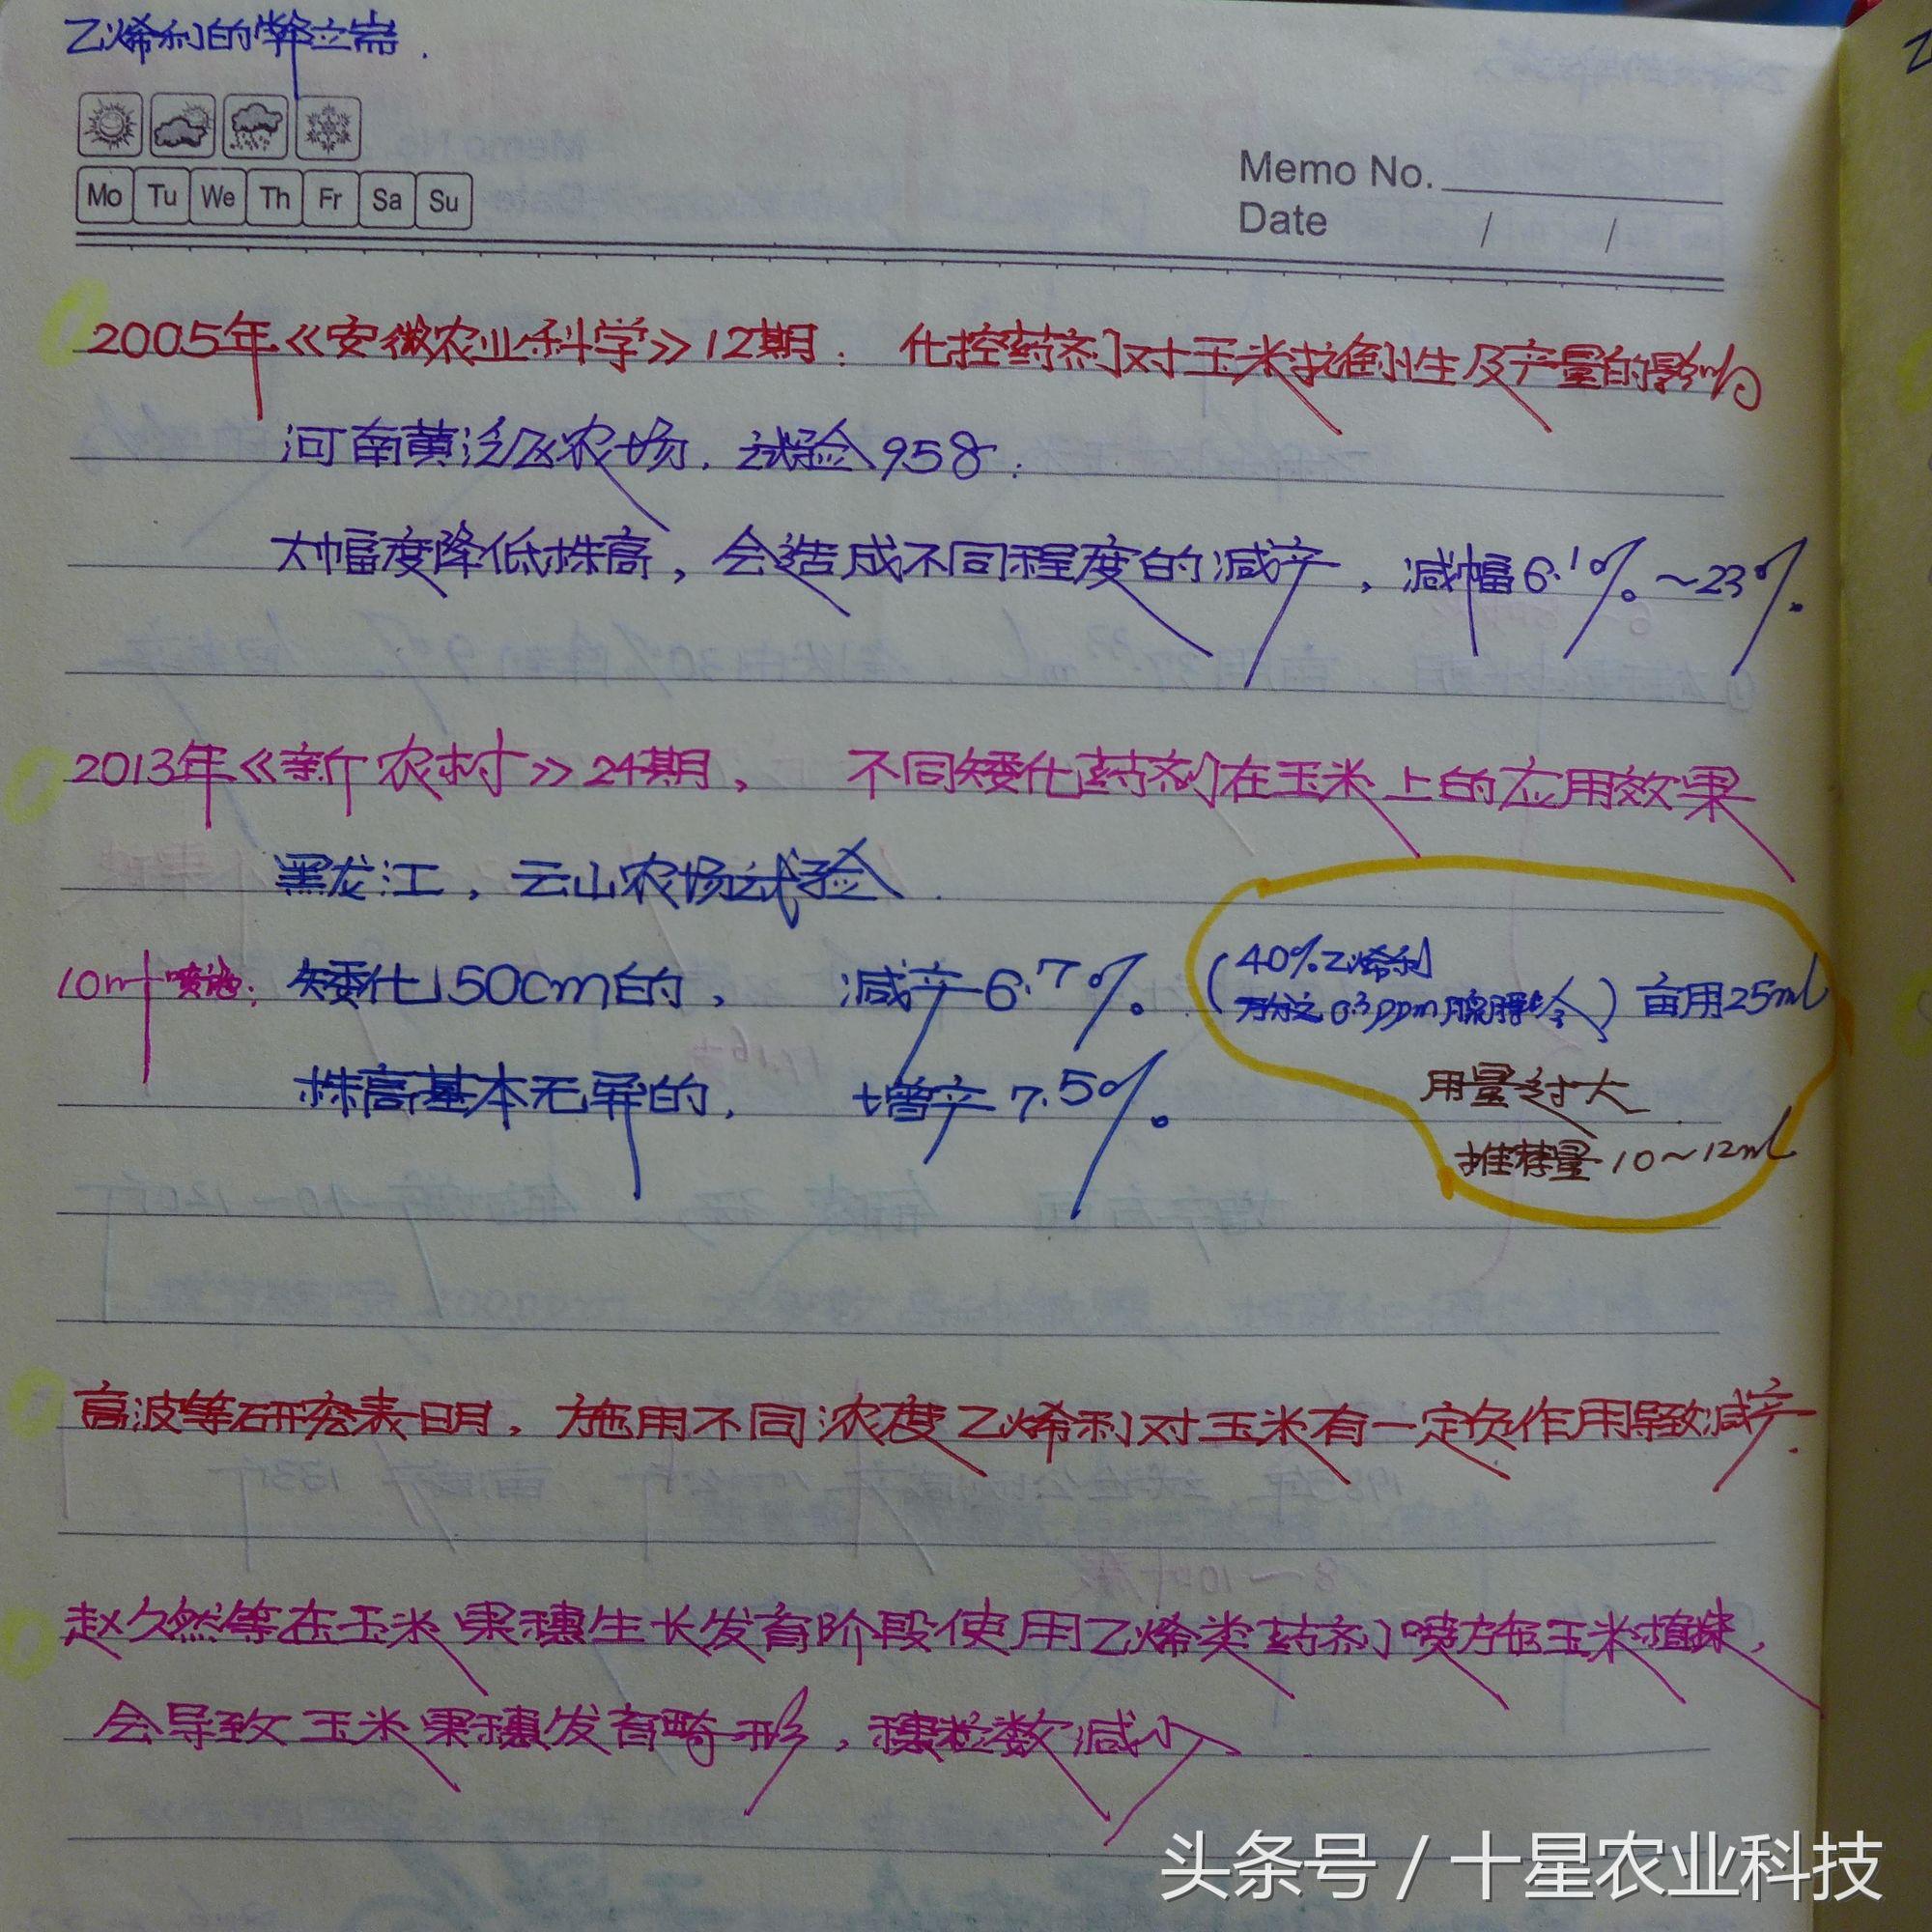 乙烯利的弊端.
Mo Tu We Th Fr Sa Su
Memo No.
Date / /
2005年《安徽农业科学》12期: 化控药剂对玉米抗倒性及产量的影响
河南黄泛区农场,试验958:
大幅度降低株高,会造成不同程度的减产,减幅6.1%~23%.
2013年《新农村》24期, 不同矮化药剂在玉米上的应用效果
黑龙江,云山农场试验.
10叶喷施: 矮化150cm的, 减产6.7%。
(40%乙烯利
万分之0.3ppm 胺鲜) 亩用25ml
株高基本无异的, 增产7.5%。
用量过大
推荐量10~12ml
高波等研究表明,施用不同浓度乙烯利对玉米有一定负作用导致减产.
赵久然等在玉米果穗生长发育阶段使用乙烯类药剂喷施玉米植株,
会导致玉米果穗发育畸形,穗粒数减少
头条号 / 十星农业科技